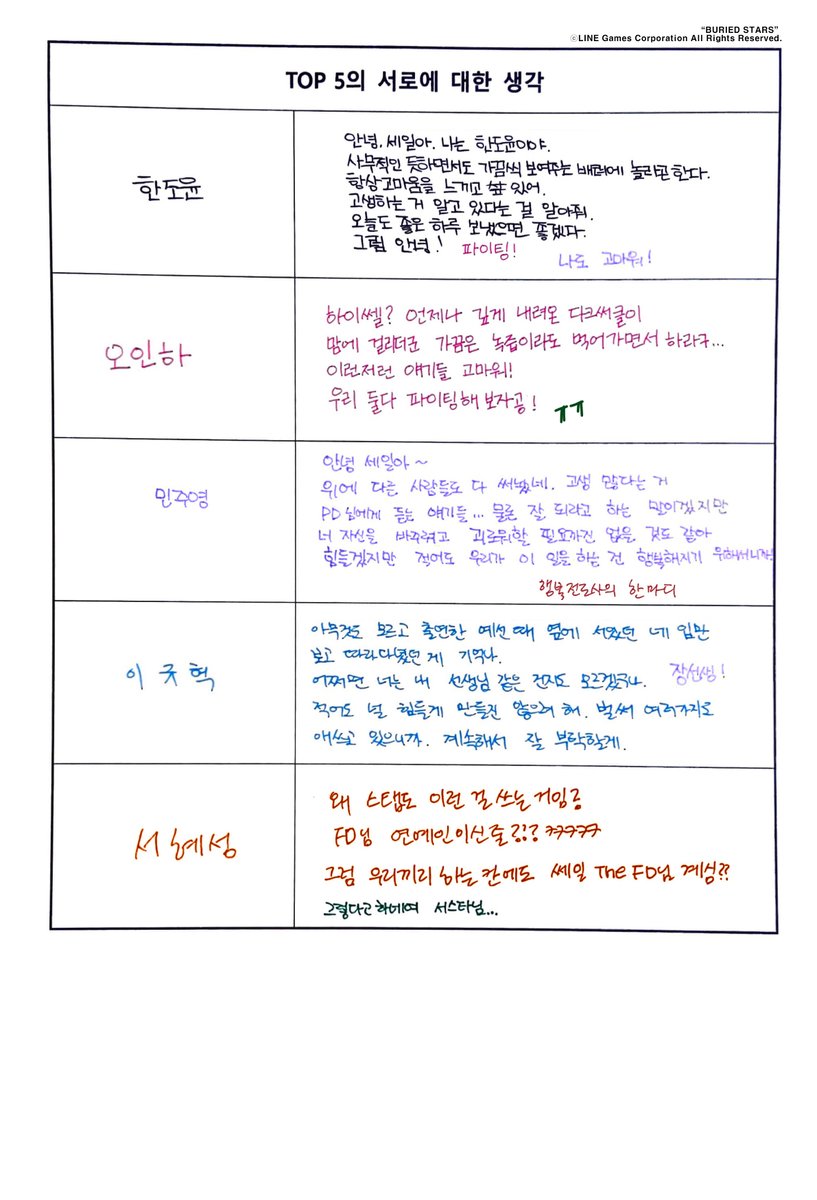 “BURIED STARS”
ⓒLINE Games Corporation All Rights Reserved.
TOP 5의 서로에 대한 생각
한도윤
안녕, 세일아. 나는 한도윤이야.
사무적인 듯하면서도 가끔씩 보여주는 배려에 놀라곤 한다.
항상 고마움을 느끼고 있어.
고생하는 거 알고 있다는 걸 알아줘.
오늘도 좋은 하루 보냈으면 좋겠다.
그럼 안녕! 파이팅! 나도 고마워!
오인하
하이쎌? 언제나 깊게 내려온 다크써클이
맘에 걸리더군 가끔은 녹즙이라도 먹어가면서 하라구...
이런저런 얘기들 고마워!
우리 둘다 파이팅해보자공! ㅠㅠ
민주영
안녕 세일아~
위에 다른 사람들도 다 써놨네. 고생 많다는 거
PD님에게 듣는 얘기들... 물론 잘 되라고 하는 말이겠지만
너 자신을 바꾸려고 괴로워할 필요까진 없을 것도 같아
힘들겠지만 적어도 우리가 이 일을 하는 건 행복해지기 위해서니까!
행복전도사의 한마디
이규혁
아무것도 모르고 출연한 예선 때 옆에 서있던 네 입만
보고 따라다녔던 게 기억나.
어쩌면 너는 내 선생님 같은 건지도 모르겠구나. 장선생!
적어도 널 힘들게 만들진 않으려 해. 벌써 여러가지로
애쓰고 있으니까. 계속해서 잘 부탁할게.
서혜성
왜 스탭도 이런 걸 쓰는거임?
FD님 연예인이신줄?!? ㅋㅋㅋㅋㅋ
그럼 우리끼리 하는 칸에도 쎄일 The FD님 계심??
그렇다고 하데여 서스타님...